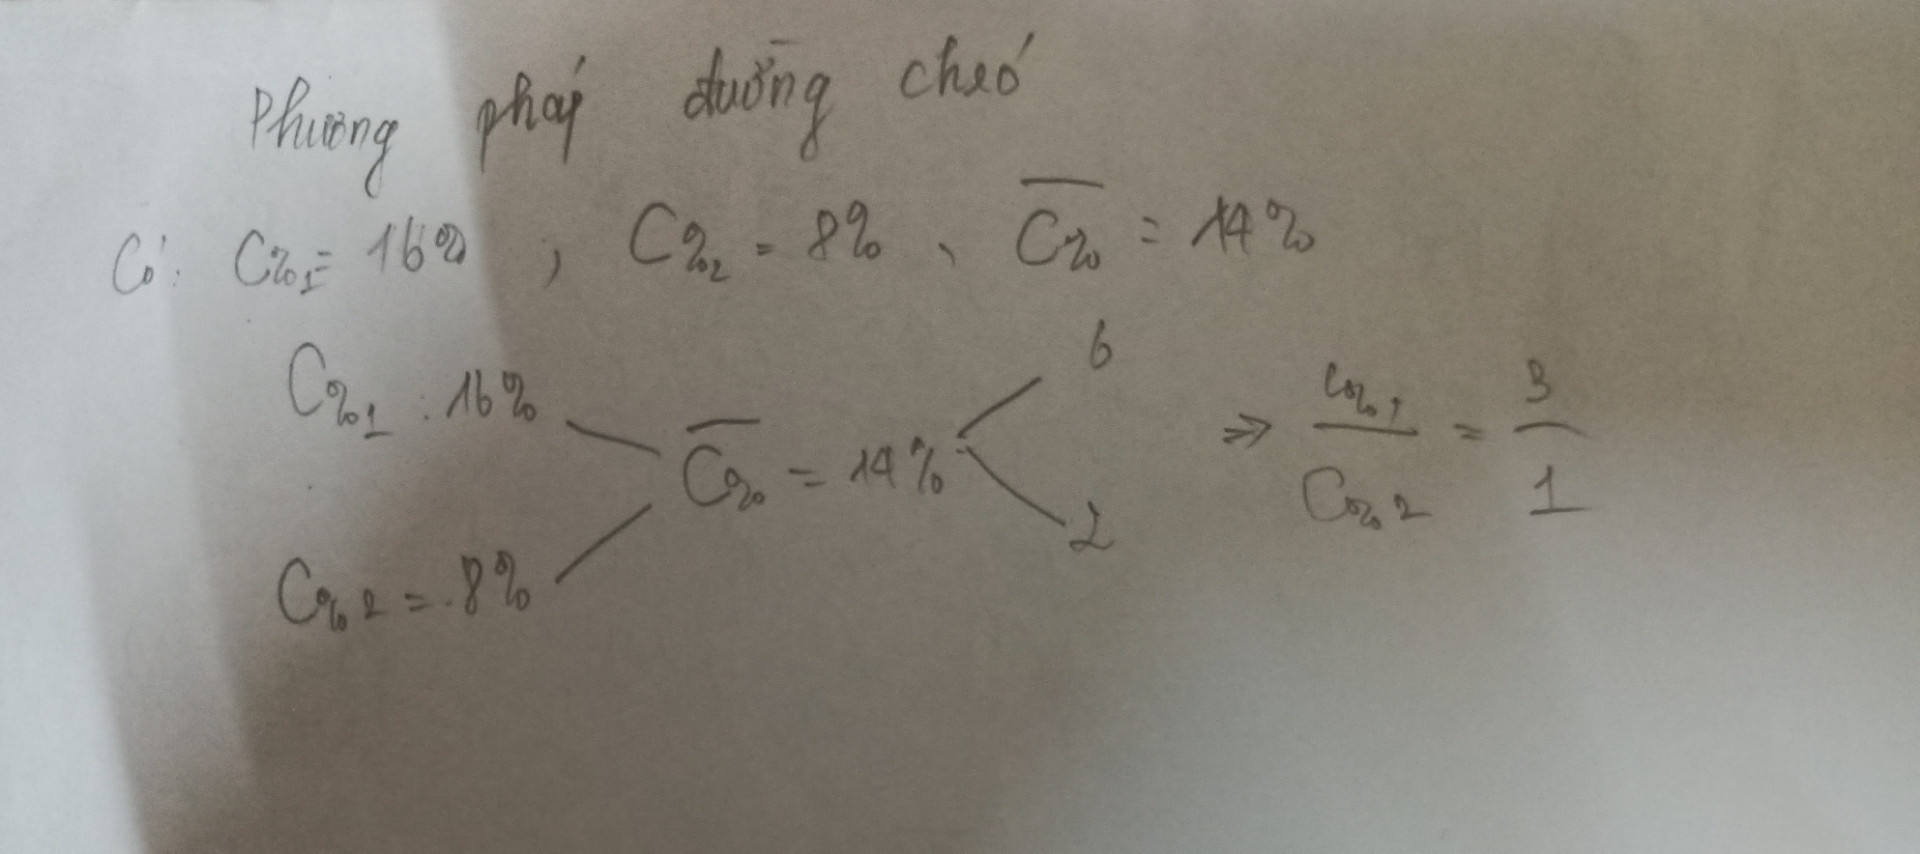 Phương pháp đường chéo
Có: C%1 = 16%, C%2 = 8%, C̅%̅ = 14%
6
C%1 : 16%
C̅%̅ = 14% => C%1/C%2 = 3/1
2
C%2 = 8%